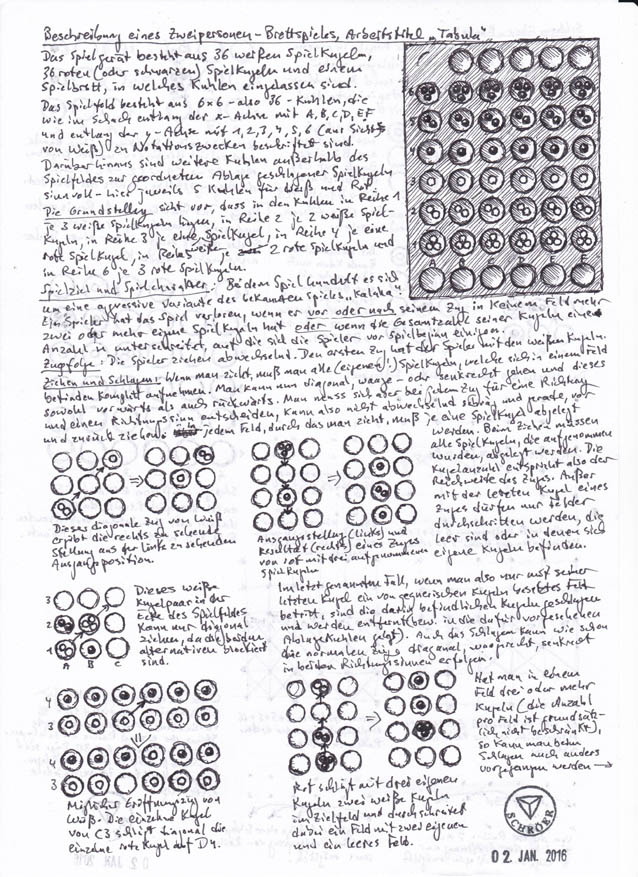 Beschreibung eines Zweipersonen-Brettspieles, Arbeitstitel "Tabula"
Das Spielgerät besteht aus 36 weißen Spielkugeln,
36 roten (oder schwarzen) Spielkugeln und einem
Spielbrett, in welches Kuhlen eingelassen sind.
Das Spielfeld besteht aus 6x6 - also 36 - Kuhlen, die
wie im Schach entlang der x-Achse mit A, B, C, D, E, F
und entlang der y-Achse mit 1, 2, 3, 4, 5, 6 (aus Sicht
von Weiß) zu Notationszwecken beschriftet sind.
Darüberhinaus sind weitere Kuhlen außerhalb des
Spielfeldes zur geordneten Ablage geschlagener Spielkugeln
sinnvoll - hier jeweils 5 Kuhlen für Weiß und Rot.
Die Grundstellung sieht vor, dass in den Kuhlen in Reihe 1
je 3 weiße Spielkugeln liegen, in Reihe 2 je 2 weiße Spiel-
kugeln, in Reihe 3 je eine Spielkugel, in Reihe 4 je eine
rote Spielkugel, in Reihe 5 je 2 rote Spielkugeln und
in Reihe 6 je 3 rote Spielkugeln.
weiße
6
5
4
3
2
1
A B C D E F
Spielziel und Spielcharakter: Bei dem Spiel handelt es sich
um eine aggressive Variante des bekannten Spieles "Kalaha".
Ein Spieler hat das Spiel verloren, wenn er vor oder nach seinem Zug in keinem Feld mehr
zwei oder mehr eigene Spielkugeln hat oder wenn die Gesamtzahl seiner Kugeln eine
Anzahl unterschreitet, auf die sich die Spieler vor Spielbeginn einigen.
Zugfolge: Die Spieler ziehen abwechselnd. Den ersten Zug hat der Spieler mit den weißen Kugeln.
Ziehen und Schlagen: Wenn man zieht, muß man alle (eigenen!) Spielkugeln, welche sich in einem Feld
befinden komplett aufnehmen. Man kann nun diagonal, waage- oder senkrecht gehen und dieses
sowohl vorwärts als auch rückwärts. Man muss sich aber bei jedem Zug für eine Richtung
und einen Richtungssinn entscheiden, kann also nicht abwechselnd schräg und gerade, vor
und zurück ziehen. jedem Feld, durch das man zieht, muß je eine Spielkugel abgelegt
werden. Beim Ziehen müssen
alle Spielkugeln, die aufgenommen
wurden, abgelegt werden. Die
Kugelanzahl entspricht also der
Reichweite des Zuges. Außer
mit der letzten Kugel eines
Zuges dürfen nur Felder
durchschritten werden, die
leer sind oder in denen sich
eigene Kugeln befinden.
Dieser diagonale Zug von Weiß
ergibt die rechts zu sehende
Stellung aus der links zu sehenden
Ausgangsposition.
Ausgangsstellung (links) und
Resultat (rechts) eines Zuges
von rot mit drei aufgenommenen
Spielkugeln
3
2
1
A B C
Dieses weiße
Kugelpaar in der
Ecke des Spielfeldes
kann nur diagonal
ziehen, da die beiden
Alternativen blockiert
sind.
Im letztgenannten Fall, wenn man also nur mit seiner
letzten Kugel ein von gegnerischen Kugeln besetztes Feld
betritt, sind die darin befindlichen Kugeln geschlagen
und werden entfernt (bzw. in die dafür vorgesehenen
Ablagekuhlen gelegt). Auch das Schlagen kann wie schon
die normalen Züge diagonal, waagrecht, senkrecht
in beiden Richtungssinnen erfolgen.
4
3
4
3
Möglicher Eröffnungszug von
Weiß: Die einzelne Kugel
von C3 schlägt diagonal die
einzelne rote Kugel auf D4.
Rot schlägt mit drei eigenen
Kugeln zwei weiße Kugeln
im Zielfeld und durchschreitet
dabei ein Feld mit zwei eigenen
und ein leeres Feld.
Hat man in einem
Feld drei oder mehr
Kugeln (die Anzahl
pro Feld ist grundsätz-
lich nicht beschränkt),
so kann man beim
Schlagen auch anders
vorgegangen werden →
SCHRÖER
02. JAN. 2016